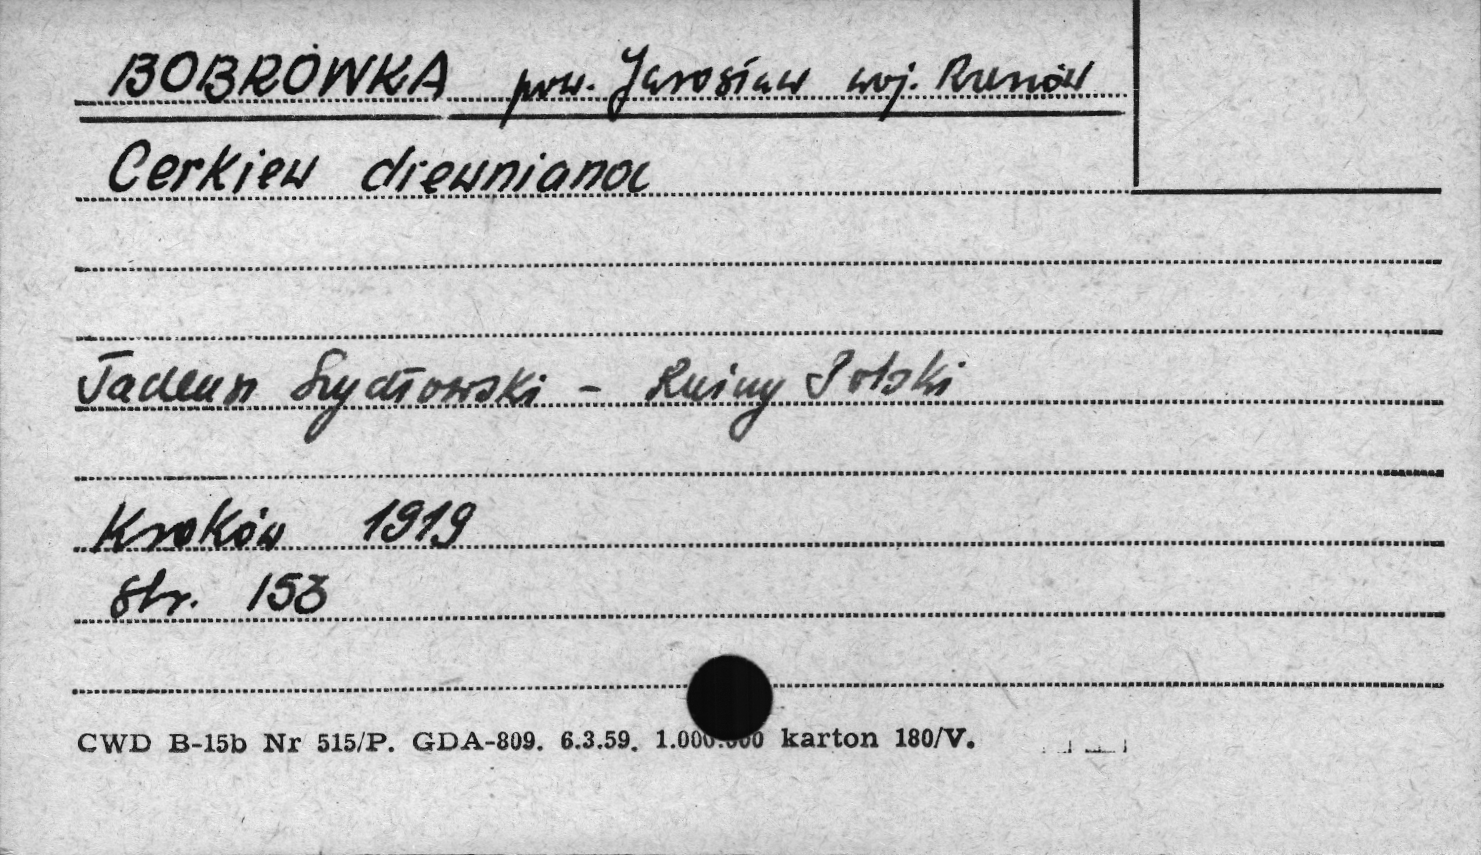 BOBRÓWKA pow. Jarosław woj. Rzeszów
Cerkiew drewniana
Tadeusz Szydłowski - Ruiny Polski
Kraków 1919
str. 153
CWD B-15b Nr 515/P. GDA-809. 6.3.59. 1.000.000 karton 180/V.